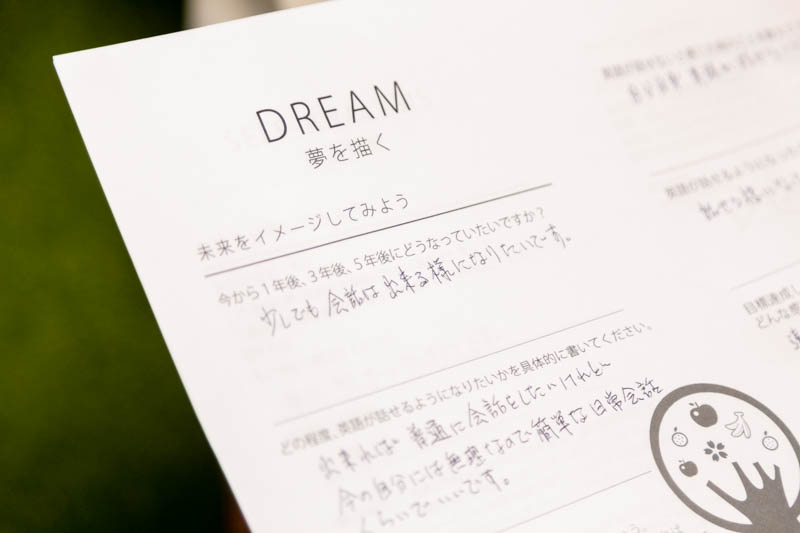 DREAM
夢を描く
未来をイメージしてみよう
今から1年後、3年後、5年後にどうなっていたいですか?
少しでも会話は出来る様になりたいです。
どの程度、英語が話せるようになりたいかを具体的に書いてください。
出来れば普通に会話をしたいけれど
今の自分には無理なので簡単な日常会話
くらいでいいです。
英語が話せるようになった
目標達成し
どんな